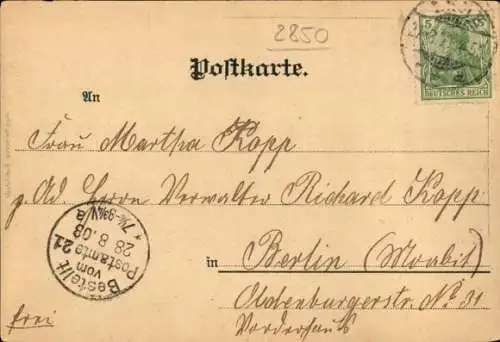 2850
5
DEUTSCHES REICH
Postkarte.
An
Frau Martha Kopp
z. Ad. Herrn Verwalter Richard Kopp
in Berlin (Moabit)
Oldenburgerstr. No 31
Vorderhaus
frei
Bestellt
vom
Postamte 21
28 8.03